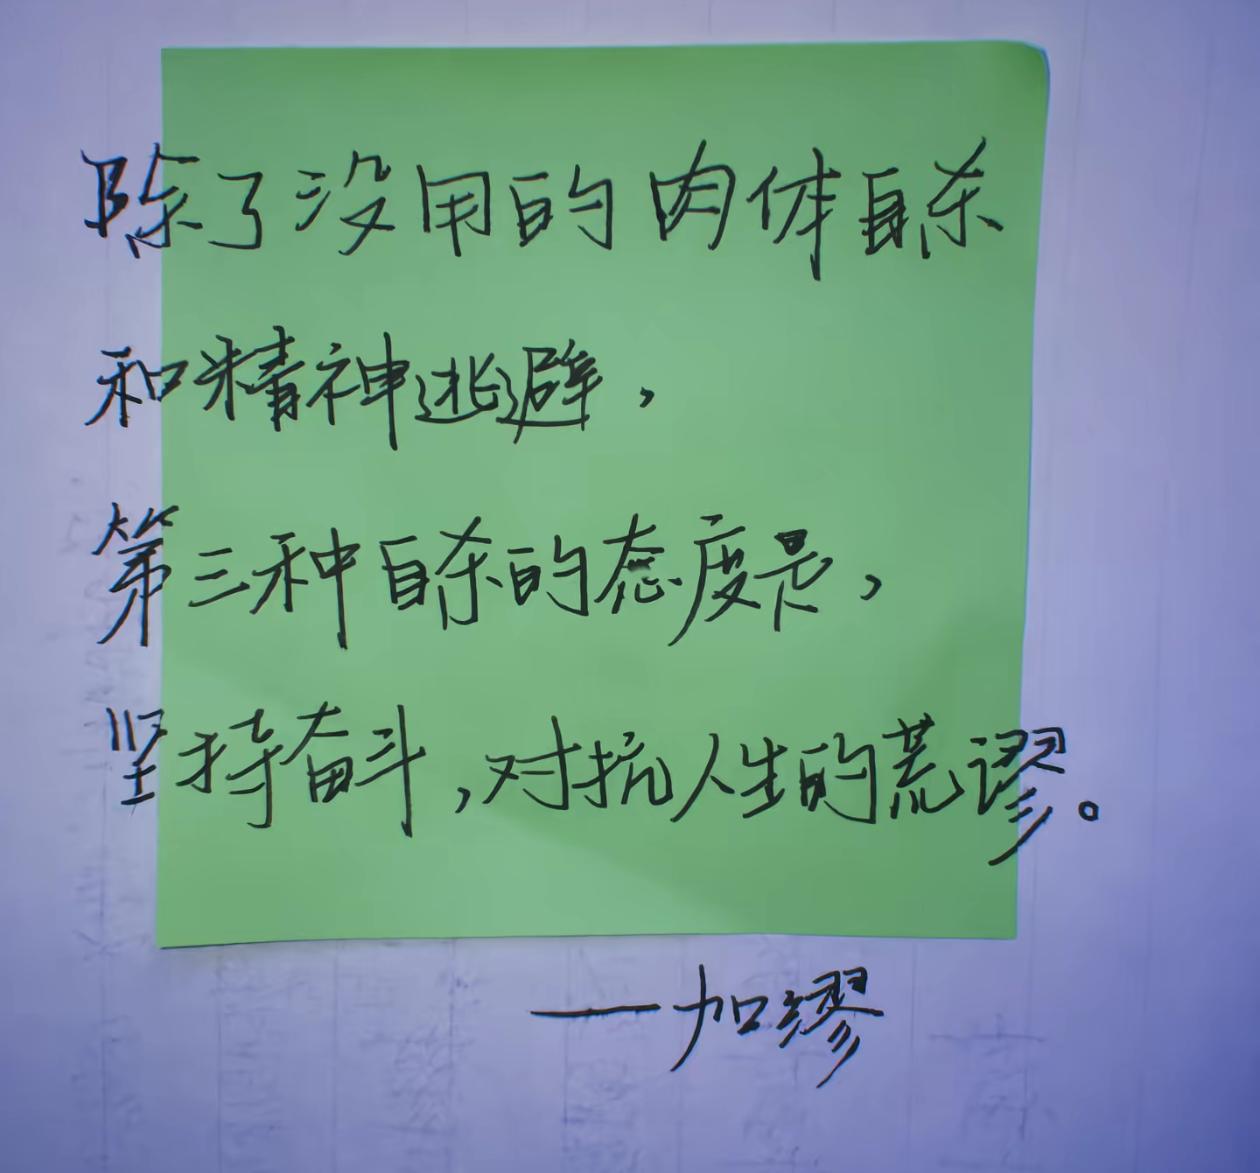 除了没用的肉体自杀
和精神逃避，
第三种自杀的态度是，
坚持奋斗，对抗人生的荒谬。
—加缪